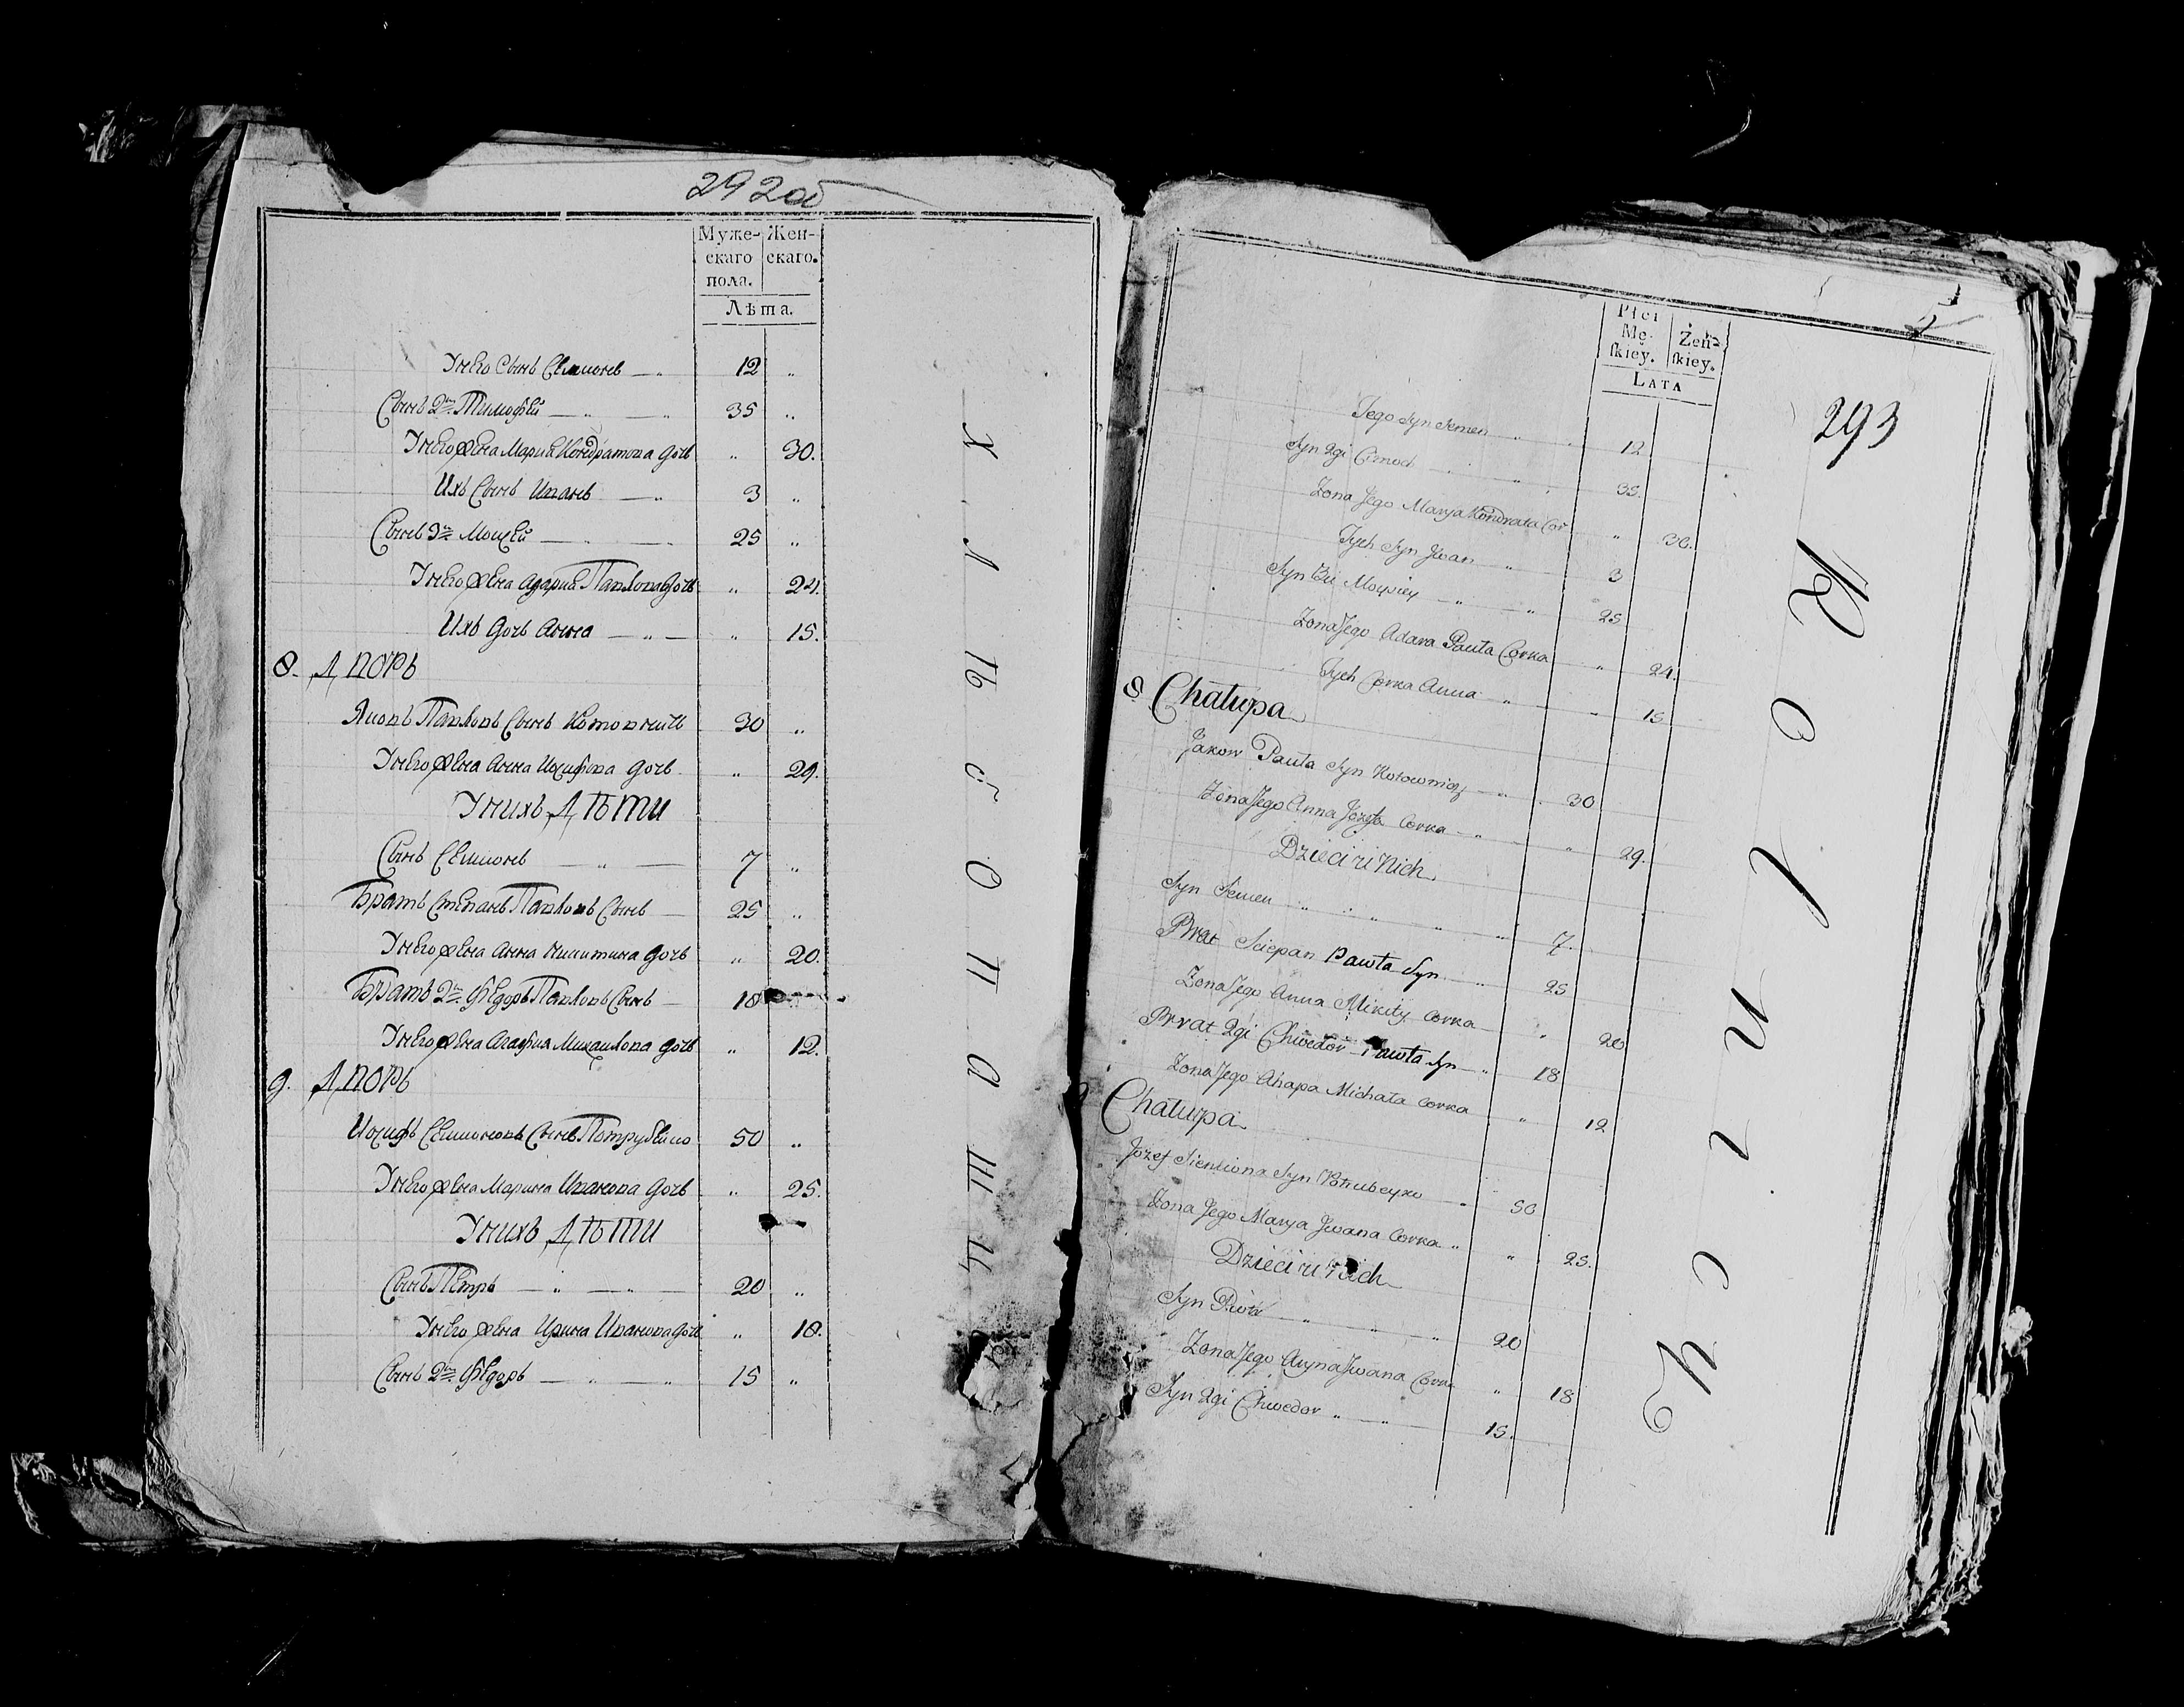 292об
Муже- Жен-
скаго скаго.
пола.
Лѣта.
У него Сынъ Семионъ 12 "
Сынъ 2й Тимофей 35 "
У него жена Мария Кондратова дочь " 30.
Ихъ Сынъ Иванъ 3 "
Сынъ 3й Мосей 25 "
У него жена Адария Павлова дочь " 24.
Ихъ дочь Анна " 15.
8. Дворъ
Яковъ Павловъ Сынъ Котовничъ 30 "
У него жена Анна Иосифова дочь " 29.
У нихъ Дѣти
Сынъ Семионъ 7 "
Братъ Степанъ Павловъ Сынъ 25 "
У него жена Анна Никитина дочь " 20.
Братъ 2й Федоръ Павловъ Сынъ 18
У него жена Агафия Михаилова дочь " 12.
9. Дворъ
Иосифъ Семионовъ Сынъ Потрубейко 50 "
У него жена Марина Иванова дочь " 25.
У нихъ Дѣти
Сынъ Петръ 20 "
У него жена Ирина Иванова дочь " 18.
Сынъ 2й Федоръ 15 "
Хлѣбопашц
293
Płci
Mę- Żeń-
ſkiey. ſkiey.
LATA
Jego Syn Semen 12
Syn 2gi Cimoch 35.
Zona Jego Marya Kondrata Cor " 30.
Jych Syn Jwan 3
Syn 3ci Moysiey 25
Zona Jego Adara Pawła Corka " 24.
Jych Corka Anna " 15
8 Chałupa
Jakow Pawła Syn Kotownicz 30
Zona Jego Anna Jozefa Corka " 29.
Dzieci u Nich
Syn Semen 7.
Brat Sciepan Pawła Syn 25
Zona Jego Anna Mikity Corka " 20
Brat 2gi Chwedor Pawła Syn 18
Zona Jego Ahapa Michała Corka " 12
Chałupa
Jozef Siemiona Syn 50
Zona Jego Marya Jwana Corka " 25.
Dzieci u Nich
Syn Piotr 20
Zona Jego Aryna Jwana Corka " 18
Syn 2gi Chwedor 15.
Rolnicy